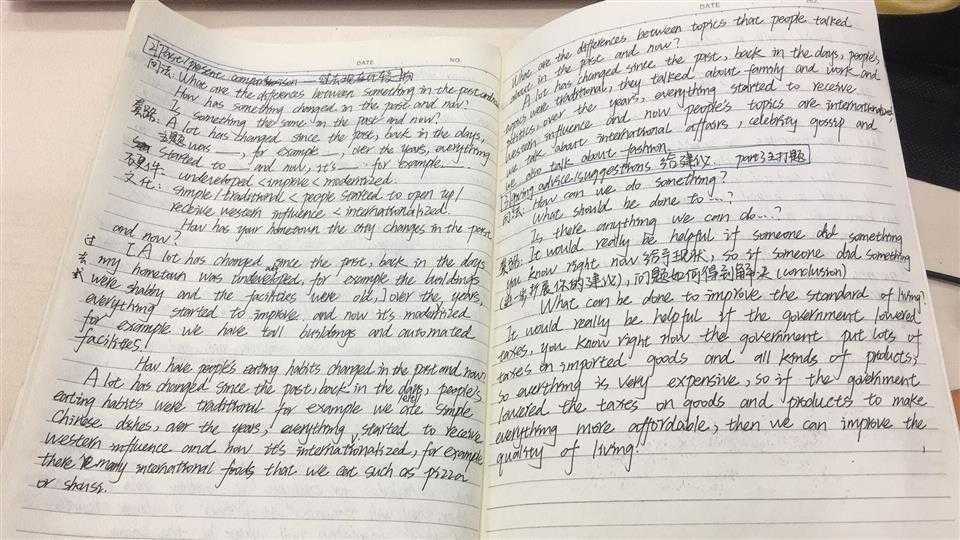 DATE NO.
2. Past/present comparison 过去现在比较
问法: What are the differences between something in the past and now
How has something changed in the past and now?
Is something the same in the past and now?
套路: A lot has changed since the past, back in the days,
主题 was ___, for example ___, over the years, everything
started to ___ and now, it's ___. for example ___
undeveloped < improve < modernized.
文化: simple/traditional < people started to open up/
receive western influence < internationalized.
How has your hometown the city changes in the past
and now?
[A lot has changed since the past, back in the days
过 my hometown was undeveloped, for example the buildings
去 were shabby and the facilities were old,] over the years,
式 everything started to improve, and now it's modernized
for example we have tall buildings and automated
facilities!
How have people's eating habits changed in the past and now
A lot has changed since the past, back in the days, people's
eating habits were traditional for example we ate simple
Chinese dishes, over the years, everything started to receive
western influence and now it's internationalized, for example
there're many international foods that we eat such as pizza
or shusi.
DATE NO.
What are the differences between topics that people talked
about in the past and now?
A lot has changed since the past, back in the days, people's
topics were traditional, they talked about family and work and
politics, over the years, everything started to receive
western influence and now people's topics are internationalized
we talk about international affairs, celebrity gossip and
we also talk about fashion.
3. giving advice/suggestions 给建议. part3主打题
问法: How can we do something?
What should be done to ....?
Is there anything we can do...?
套路: It would really be helpful if someone did something
you know right now 给予现状, so if someone did something
(进一步扩展你的建议), 问题如何得到解决 (conclusion)
What can be done to improve the standard of living?
It would really be helpful if the government lowered
taxes, you know right now the government put lots of
taxes on imported goods and all kinds of products,
so everthing is very expensive, so if the government
lowered the taxes on goods and products to make
everything more affordable, then we can improve the
quality of living.